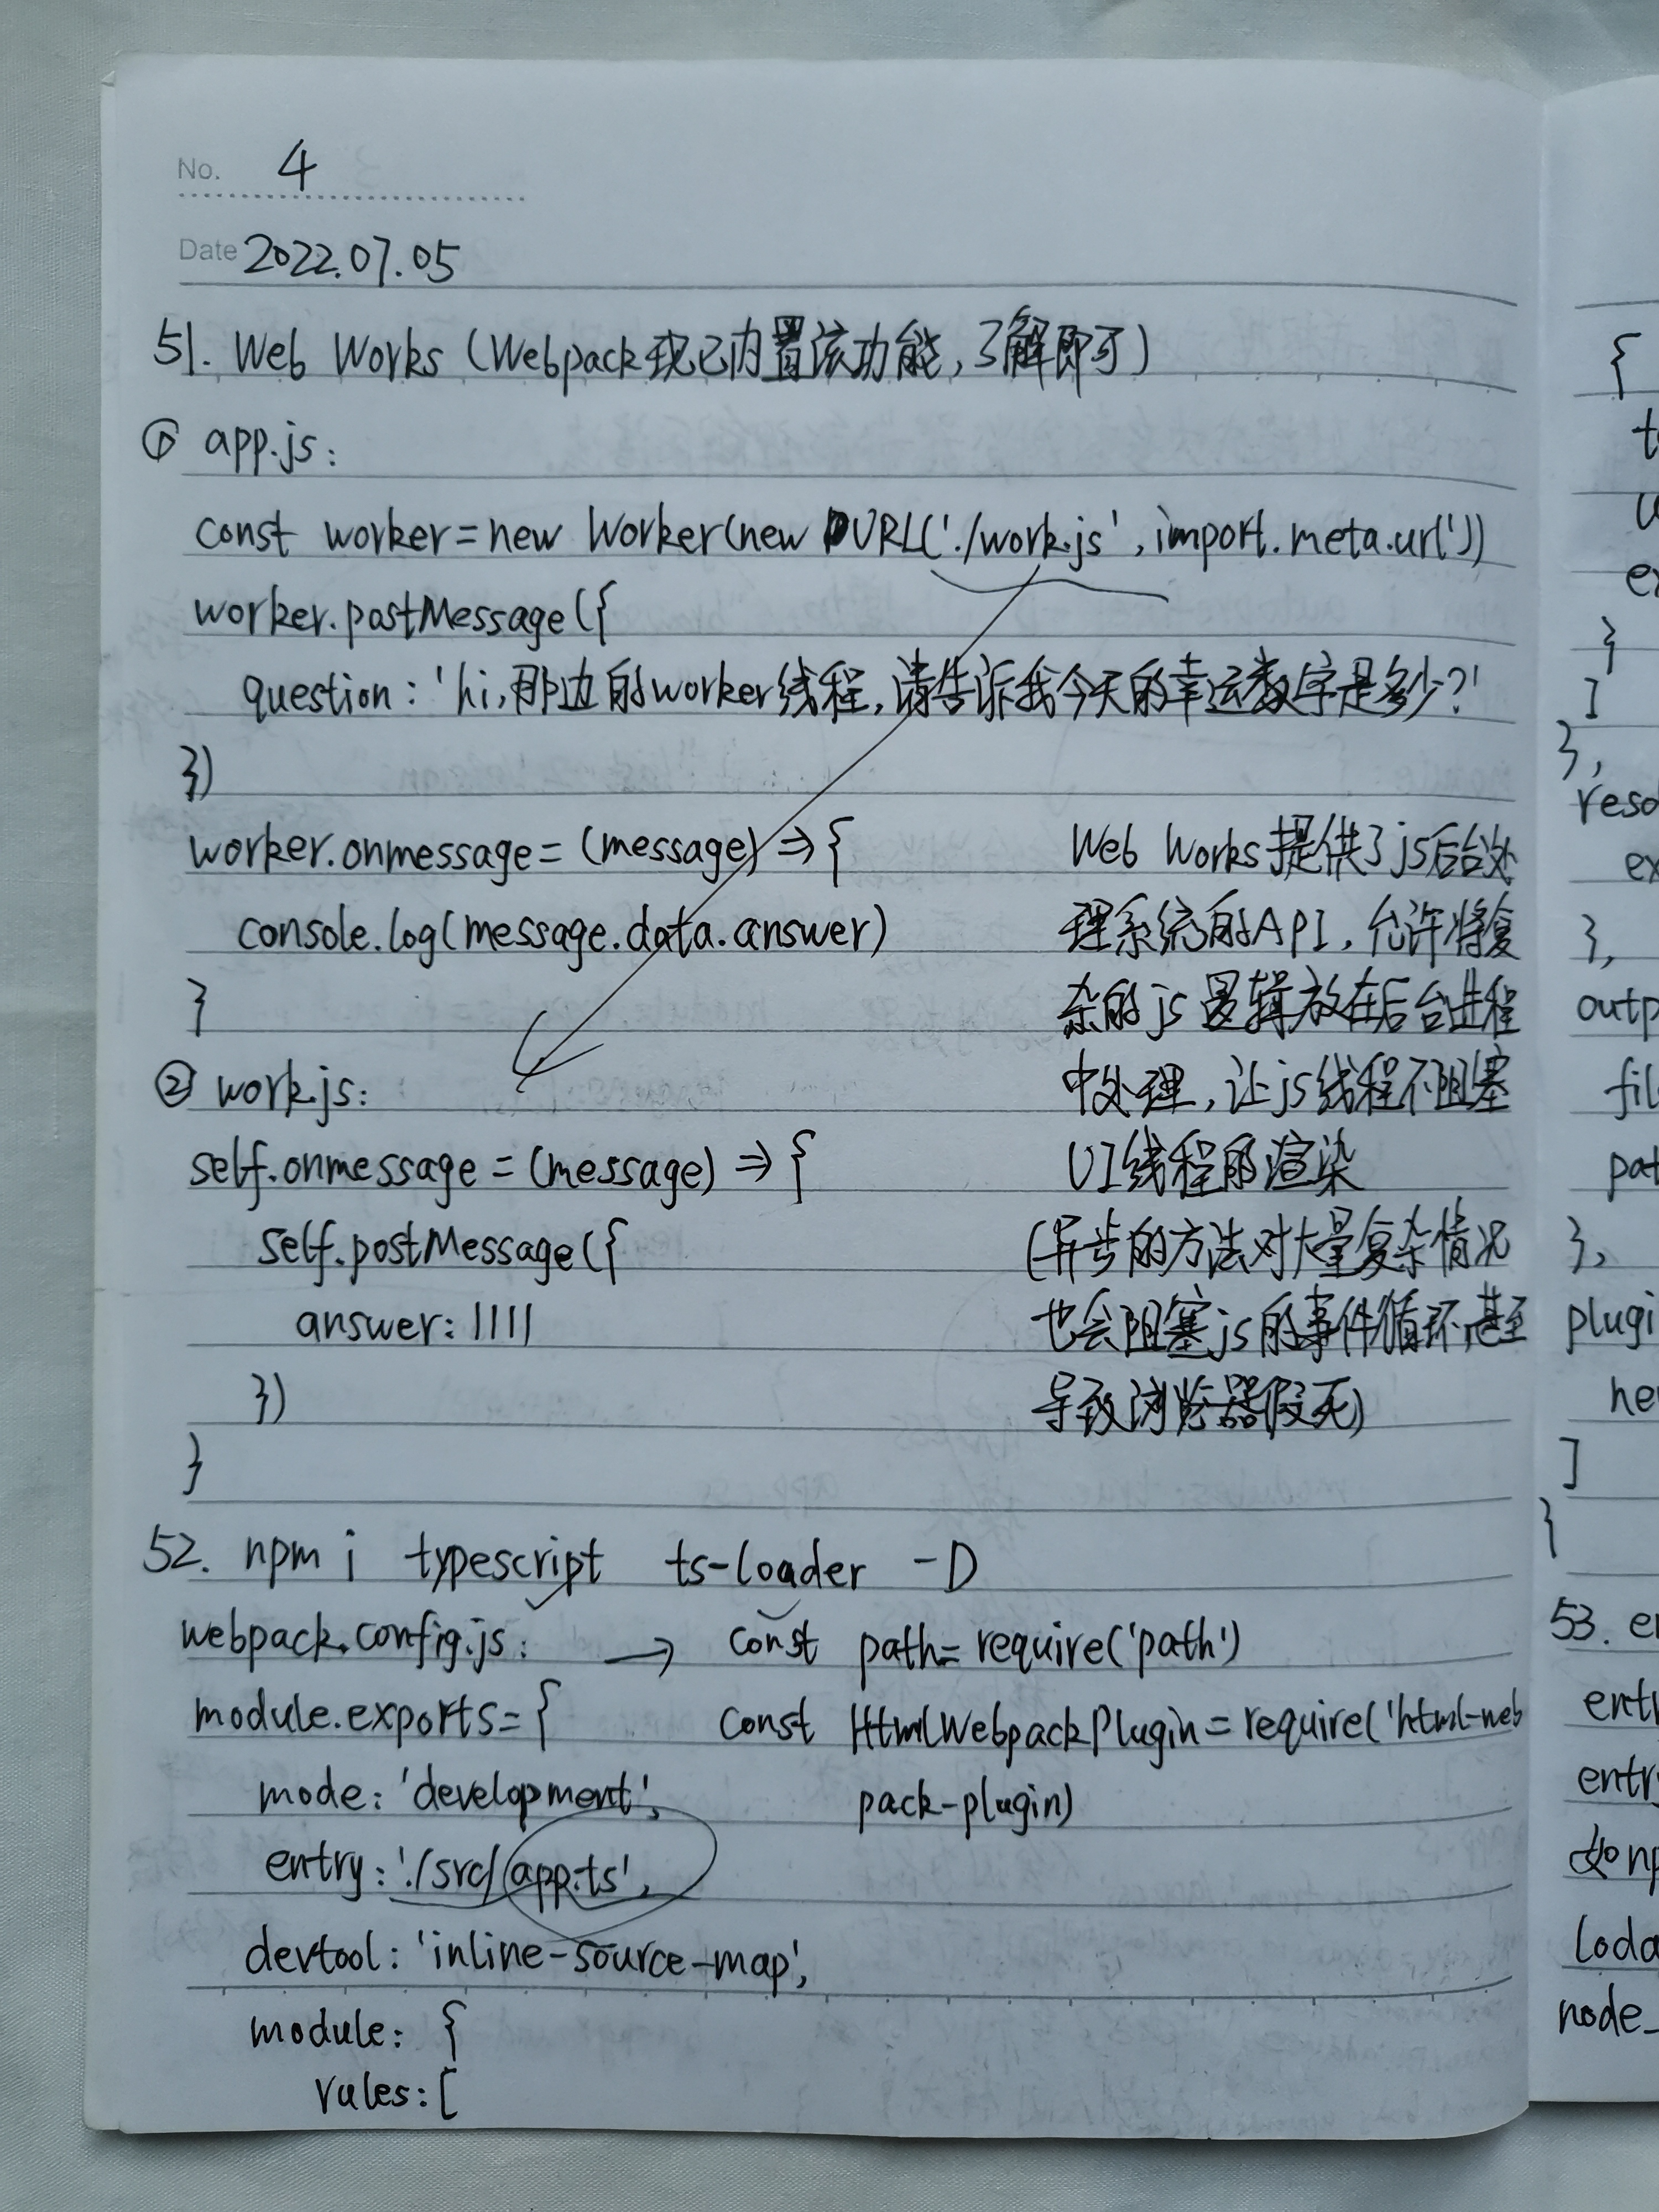 No. 4
Date 2022.07.05
51. Web Works (Webpack现已内置该功能,了解即可)
① app.js:
const worker=new Worker(new URL('./work.js',import.meta.url'))
worker.postMessage({
question:'hi,那边的worker线程,请告诉我今天的幸运数字是多少?'
})
worker.onmessage=(message)=>{
console.log(message.data.answer)
}
② work.js:
self.onmessage=(message)=>{
self.postMessage({
answer:1111
})
}
Web Works提供了js后台处
理系统的API,允许将复
杂的js逻辑放在后台进程
中处理,让js线程不阻塞
UI线程的渲染
(异步的方法对大量复杂情况
也会阻塞js的事件循环,甚至
导致浏览器假死)
52. npm i typescript ts-loader -D
webpack.config.js: → const path=require('path')
module.exports={ const HtmlWebpackPlugin=require('html-web
mode:'development', pack-plugin)
entry:'./src/app.ts',
devtool:'inline-source-map',
module: {
rules:[
{
}
]
},
},
},
]
}
53.